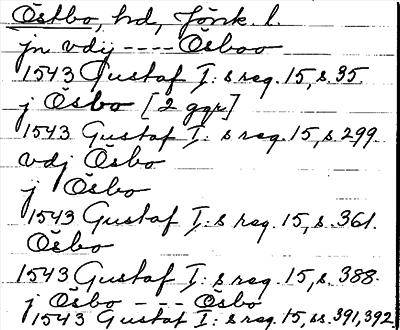 Östbo, hd, Jönk. l.
jn vdij ---- Ösboo
1543 Gustaf I: s reg. 15, s. 35.
j Ösbo [2 ggr]
1543 Gustaf I: s reg. 15, s. 299.
vdj Ösbo
j Ösbo
1543 Gustaf I: s reg. 15, s. 361.
Ösbo
1543 Gustaf I: s reg. 15, s. 388.
j Ösbo --- Ösbo
1543 Gustaf I: s reg. 15, ss. 391, 392